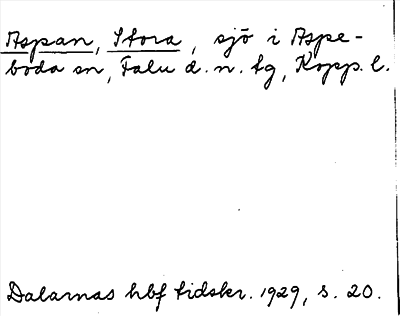 Aspan, Stora, sjö i Aspe-
boda sn, Falu d. n. tg, Kopp. l.
Dalarnas hbf tidskr. 1929, s. 20.